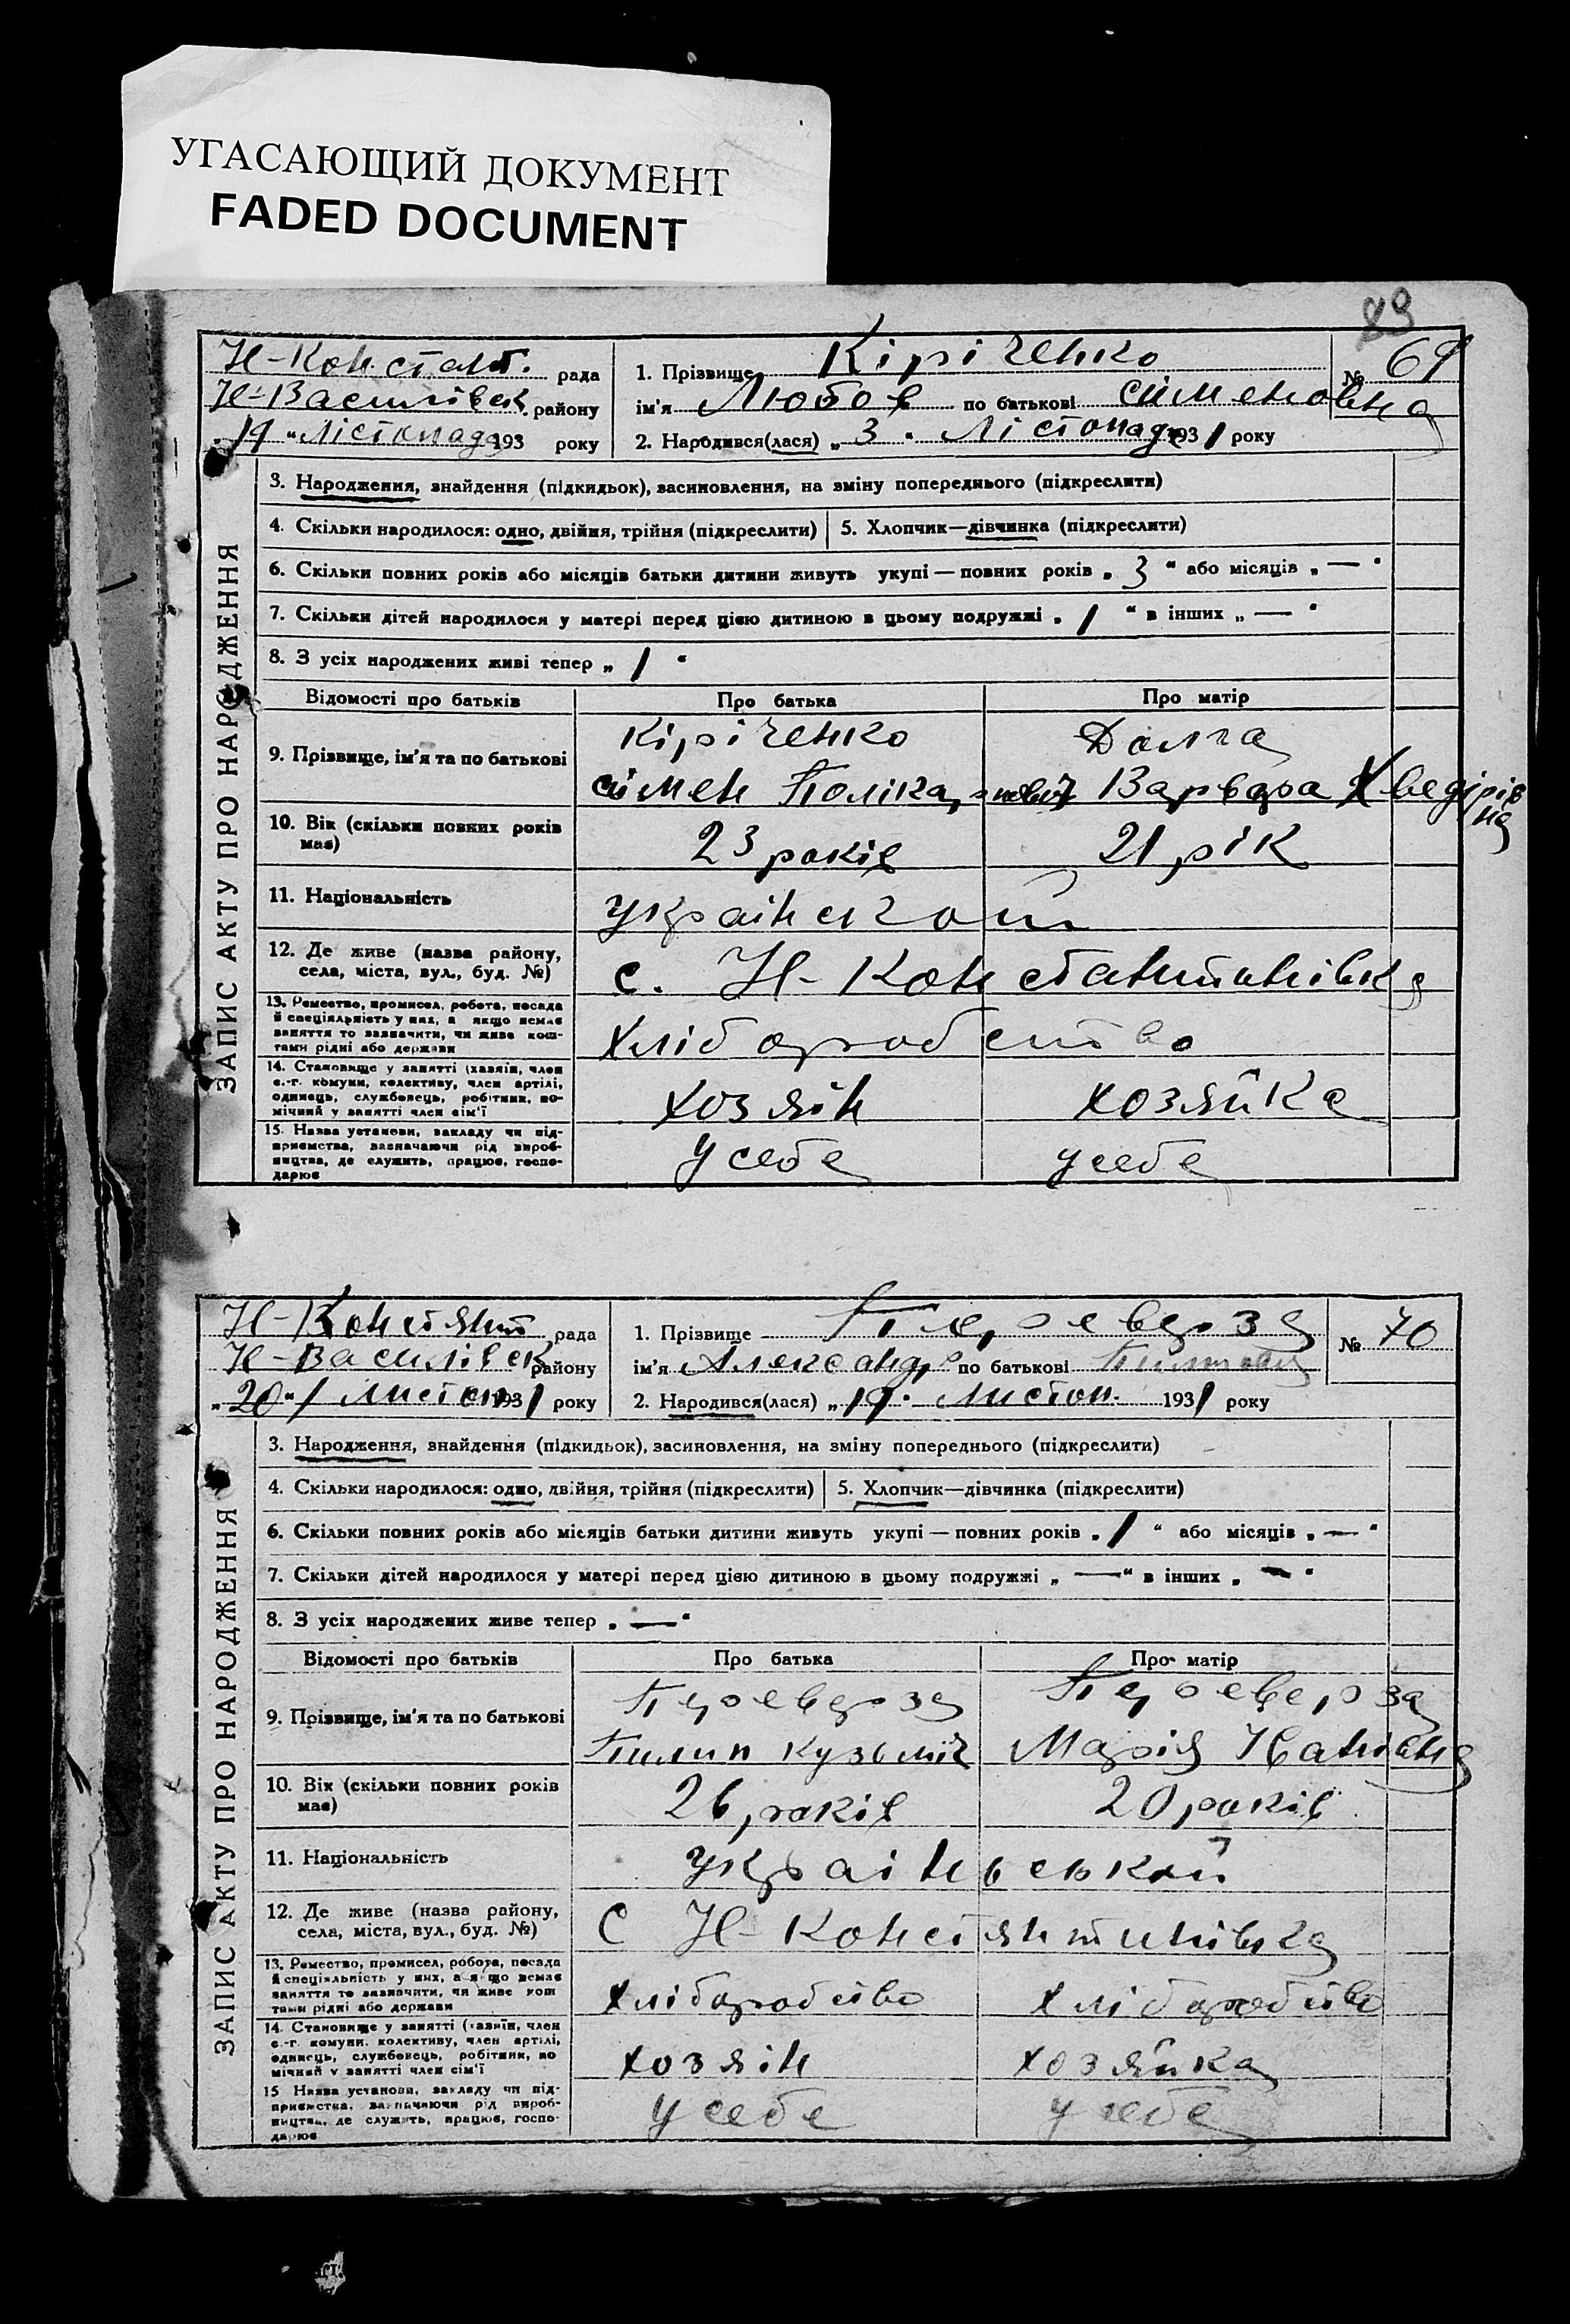 УГАСАЮЩИЙ ДОКУМЕНТ
FADED DOCUMENT
89
Н-Констант. рада
Н-Василівськ. району
"19" Лістопада 193 року
1. Прізвище Кіріченко
№ 69
ім'я Любов по батькові Сіменовна
2. Народився(лася) „3" Лістопада 1931 року
ЗАПИС АКТУ ПРО НАРОДЖЕННЯ
3. Народження, знайдення (підкидьок), засиновлення, на зміну попереднього (підкреслити)
4. Скільки народилося: одно, двійня, трійня (підкреслити)
5. Хлопчик—дівчинка (підкреслити)
6. Скільки повних років або місяців батьки дитини живуть укупі — повних років „3" або місяців „—"
7. Скільки дітей народилося у матері перед цією дитиною в цьому подружжі „1" в інших „—"
8. З усіх народжених живі тепер „1"
Відомості про батьків Про батька Про матір
9. Прізвище, ім'я та по батькові
Кірі ченко
Сімен Полікарпович
Долга
Варвара Хведірівна
10. Вік (скільки повних років має)
23 років
21 рік
11. Національність
12. Де живе (назва району, села, міста, вул., буд. №)
с. Н-Константинівка
13. Ремество, промисел, робота, посада й спеціяльність у них, а якщо немає заняття то зазначити, чи живе коштами рідні або держави
Хліборобство
14. Становище у занятті (хазяїн, член с.-г. комуни, колективу, член артілі, одинець, службовець, робітник, помічний у занятті член сім'ї
хозяін
хозяйка
15. Назва установи, закладу чи підприємства, зазначаючи рід виробництва, де служить, працює, господарює
у себе
у себе
Н-Констянт рада
Н-Василівськ району
"20" / Листоп 1931 року
1. Прізвище Переверза
№ 70
ім'я Александр по батькові
2. Народився(лася) „19" Листоп. 1931 року
ЗАПИС АКТУ ПРО НАРОДЖЕННЯ
3. Народження, знайдення (підкидьок), засиновлення, на зміну попереднього (підкреслити)
4. Скільки народилося: одно, двійня, трійня (підкреслити)
5. Хлопчик—дівчинка (підкреслити)
6. Скільки повних років або місяців батьки дитини живуть укупі — повних років „1" або місяців „—"
7. Скільки дітей народилося у матері перед цією дитиною в цьому подружжі „—" в інших „—"
8. З усіх народжених живе тепер „—"
Відомості про батьків Про батька Про матір
9. Прізвище, ім'я та по батькові
Переверза
Пилип Кузьміч
Переверза
Марія Іванівна
10. Вік (скільки повних років має)
26 років
20 років
11. Національність
Украінський
12. Де живе (назва району, села, міста, вул., буд. №)
С Н-Констянтинівка
13. Ремество, промисел, робота, посада й спеціяльність у них, а якщо немає заняття то зазначити, чи живе коштами рідні або держави
хліборобство
хліборобство
14. Становище у занятті (хазяїн, член с.-г. комуни, колективу, член артілі, одинець, службовець, робітник, помічний у занятті член сім'ї
хозяін
хозяйка
15 Назва установи, закладу чи підприємства, зазначаючи рід виробництва, де служить, працює, господарює
у себе
у себе